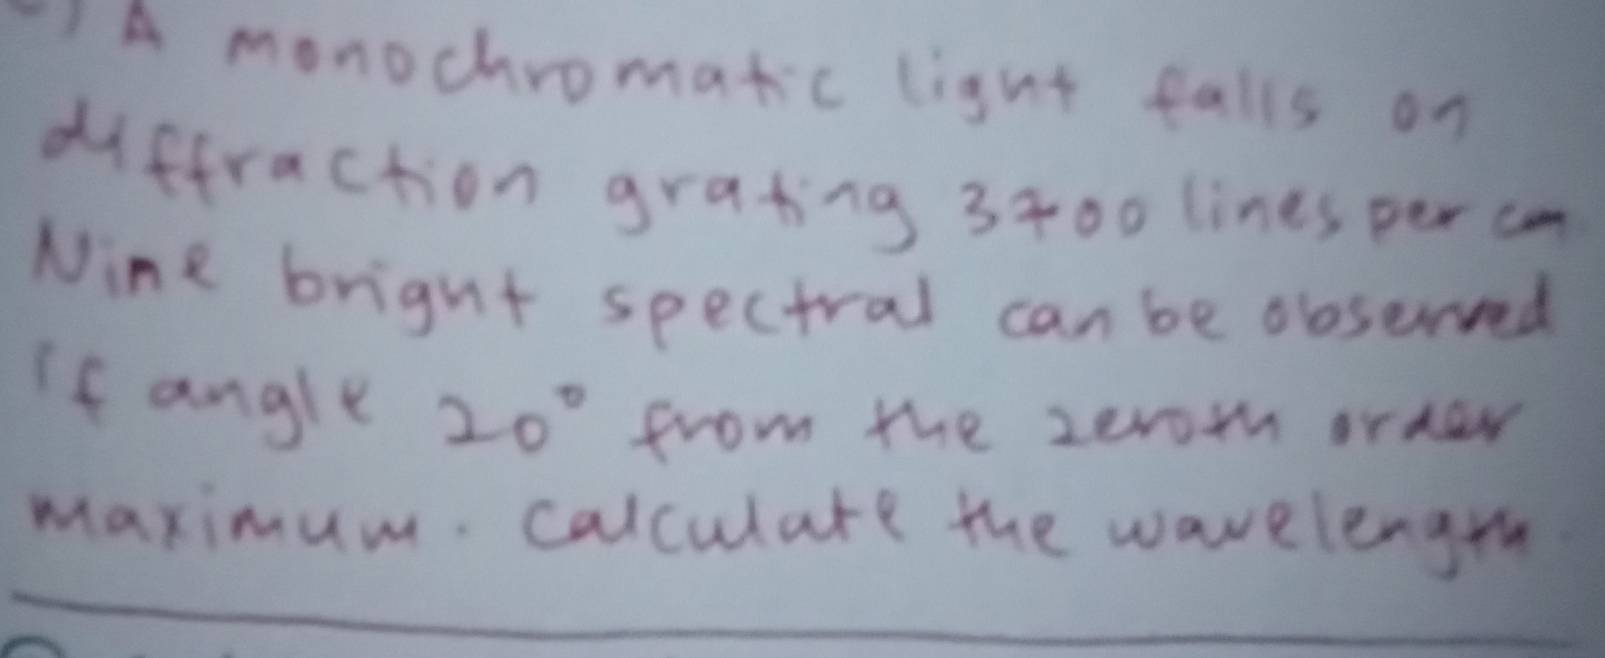 A monochromatic light falls on
diffraction grating 3700 lines per cm
Nine bright spectral can be observed
if angle 20° from the zeroth order
maximum. Calculate the wavelength.